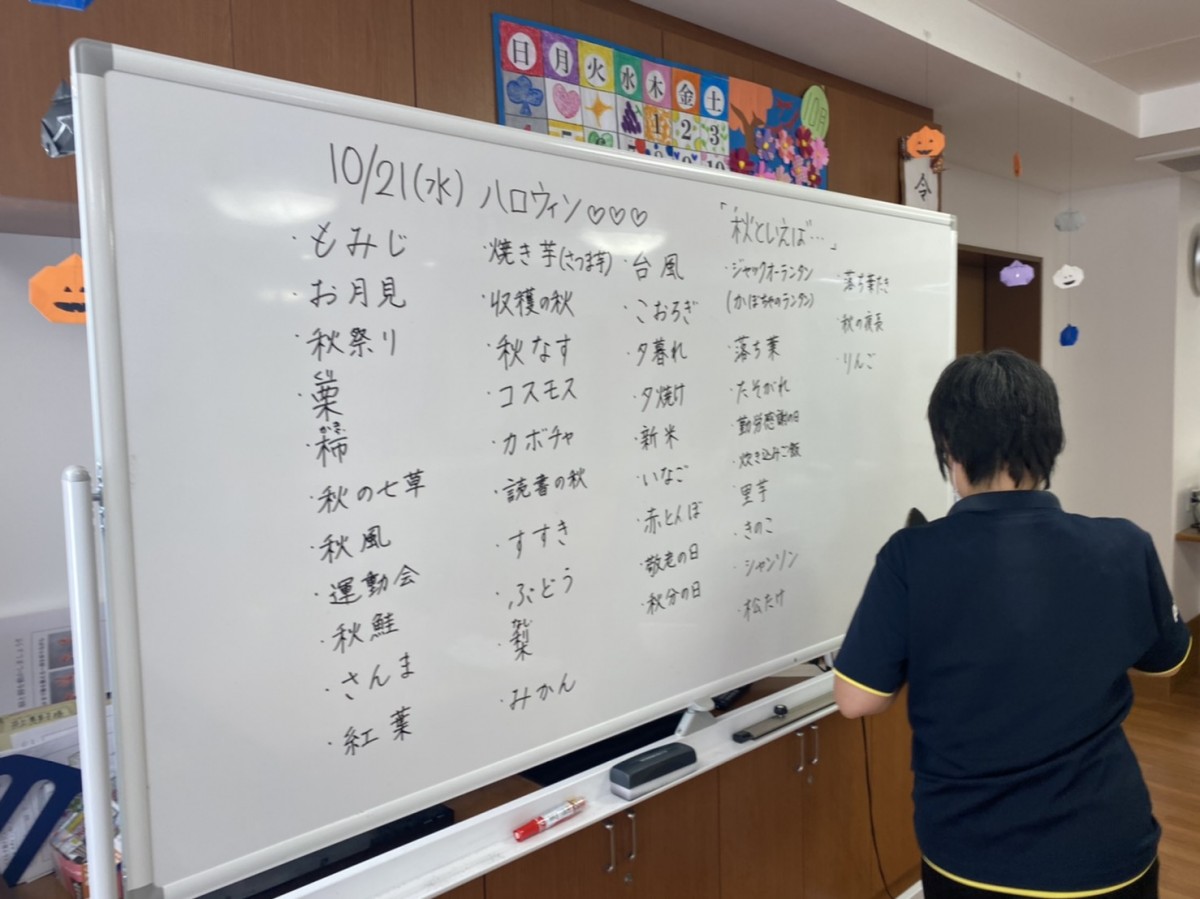 日 月 火 水 木 金 土
1 2 3
10月
令
10/21(水) ハロウィン♡♡♡
「秋といえば…」
・もみじ
・お月見
・秋祭り
くり
・栗
かき
・柿
・秋の七草
・秋風
・運動会
・秋鮭
・さんま
・紅葉
・焼き芋(さつま芋)
・収穫の秋
・秋なす
・コスモス
・カボチャ
・読書の秋
・すすき
・ぶどう
なし
・梨
・みかん
・台風
・こおろぎ
・夕暮れ
・夕焼け
・新米
・いなご
・赤とんぼ
・敬老の日
・秋分の日
・ジャックオーランタン
(かぼちゃのランタン)
・落ち葉
・たそがれ
・勤労感謝の日
・炊き込みご飯
・里芋
・きのこ
・シャンソン
・松たけ
・落ち葉たき
・秋の夜長
・りんご